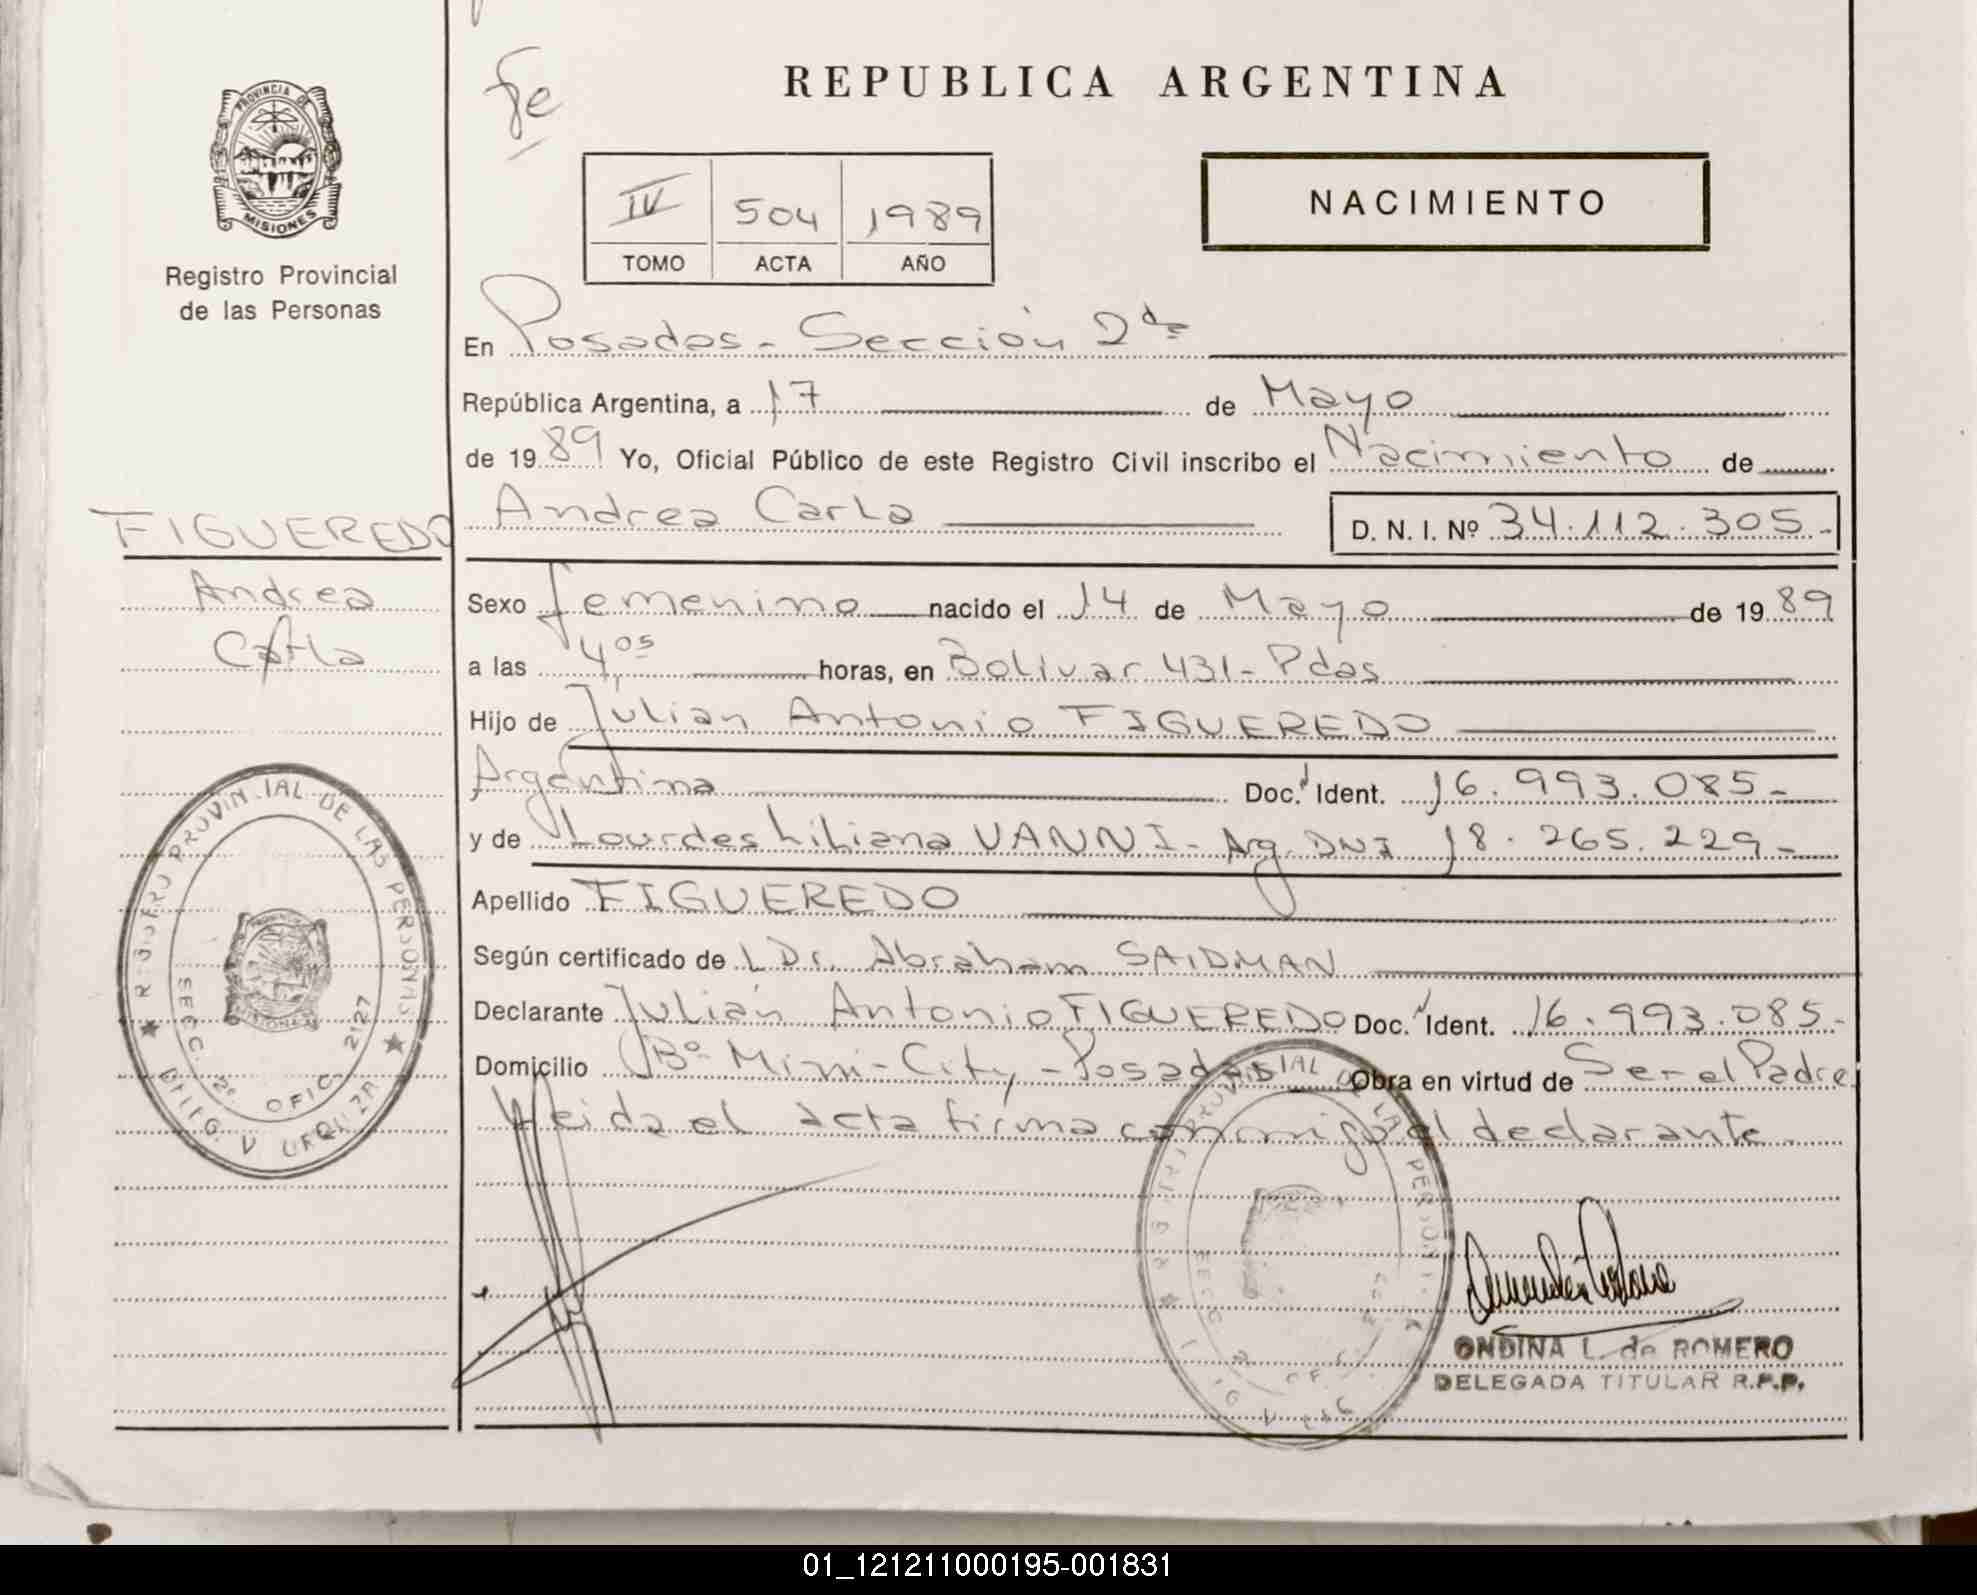 fe
REPUBLICA ARGENTINA
PROVINCIA DE
MISIONES
Registro Provincial
de las Personas
IV 504 1989
TOMO ACTA AÑO
NACIMIENTO
En Posadas - Sección 2da
República Argentina, a 17 de Mayo
de 1989 Yo, Oficial Público de este Registro Civil inscribo el Nacimiento de
Andrea Carla D. N. I. Nº 34.112.305.-
FIGUEREDO
Andrea
Carla
Sexo femenino nacido el 14 de Mayo de 1989
a las 4,05 horas, en Bolivar 431 - Pdas
Hijo de Julian Antonio FIGUEREDO
Argentina Doc. Ident. 16.993.085-
y de Lourdes Liliana VANNI - Arg. DNI 18.265.229-
Apellido FIGUEREDO
Según certificado de L Dr. Abraham SAIDMAN
Declarante Julián Antonio FIGUEREDO Doc. Ident. 16.993.085-
Domicilio Bº Mini-City - Posadas Obra en virtud de Ser el Padre
Leida el acta firma conmigo el declarante
REGISTRO PROVINCIAL DE LAS PERSONAS
SECC. 2º OFIC. 2127
V URQUIZA
MISIONES
ONDINA L. de ROMERO
DELEGADA TITULAR R.P.P.
01_121211000195-001831